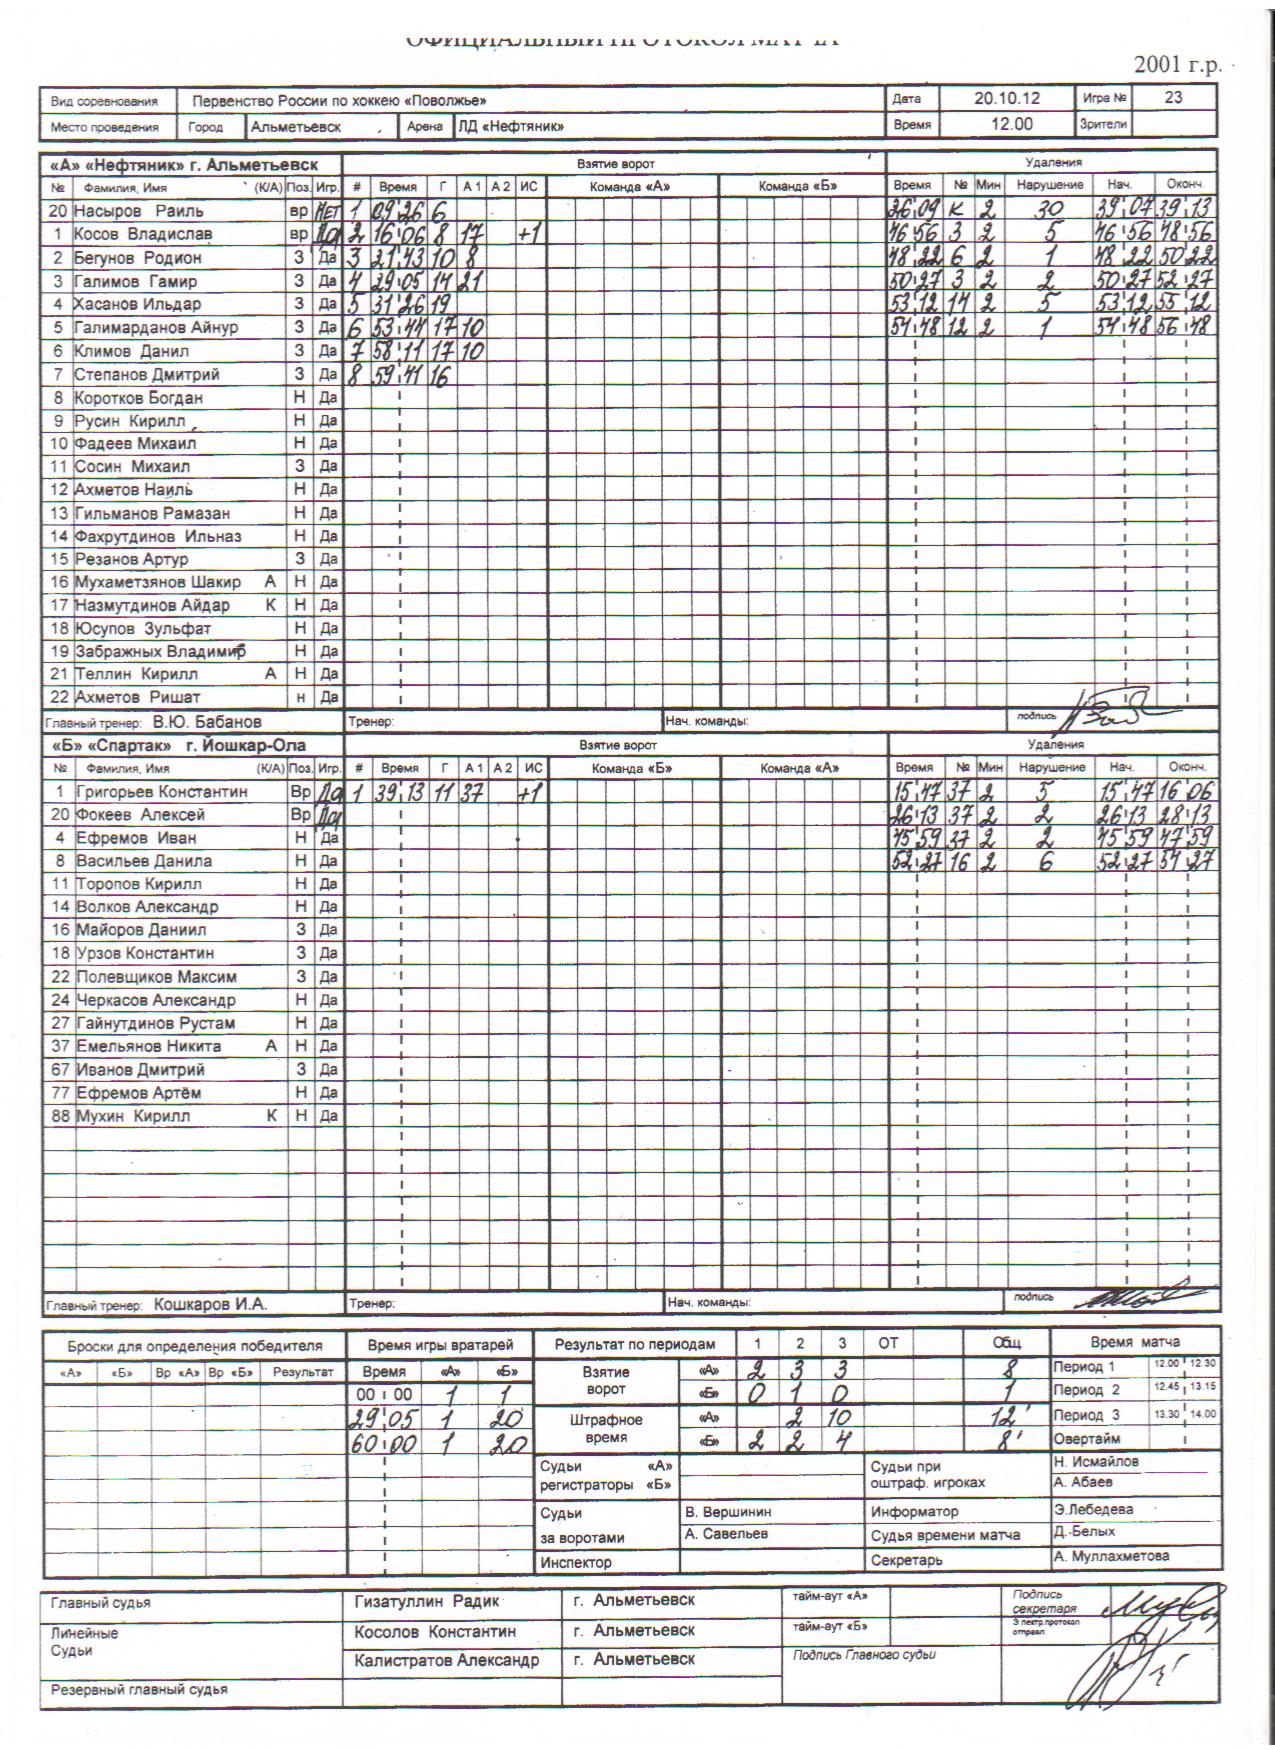 ОФИЦИАЛЬНЫЙ ПРОТОКОЛ МАТЧА
2001 г.р.
Вид соревнования Первенство России по хоккею «Поволжье» Дата 20.10.12 Игра № 23
Место проведения Город Альметьевск Арена ЛД «Нефтяник» Время 12.00 Зрители
«А» «Нефтяник» г. Альметьевск Взятие ворот Удаления
№ Фамилия, Имя (К/А) Поз. Игр. # Время Г А 1 А 2 ИС Команда «А» Команда «Б» Время № Мин Нарушение Нач. Оконч.
20 Насыров Раиль вр Нет 1 09:26 6 36:09 К 2 30 39:07 39:13
1 Косов Владислав вр Да 2 16:06 8 17 +1 46:56 3 2 5 46:56 48:56
2 Бегунов Родион З Да 3 21:43 10 8 48:22 6 2 1 48:22 50:22
3 Галимов Гамир З Да 4 29:05 14 21 50:27 3 2 2 50:27 52:27
4 Хасанов Ильдар З Да 5 31:26 19 53:12 14 2 5 53:12 55:12
5 Галимарданов Айнур З Да 6 53:44 17 10 54:48 12 2 1 54:48 56:48
6 Климов Данил З Да 7 58:11 17 10
7 Степанов Дмитрий З Да 8 59:41 16
8 Коротков Богдан Н Да
9 Русин Кирилл Н Да
10 Фадеев Михаил Н Да
11 Сосин Михаил З Да
12 Ахметов Наиль Н Да
13 Гильманов Рамазан Н Да
14 Фахрутдинов Ильназ Н Да
15 Резанов Артур З Да
16 Мухаметзянов Шакир А Н Да
17 Назмутдинов Айдар К Н Да
18 Юсупов Зульфат Н Да
19 Забражных Владимир Н Да
21 Теллин Кирилл А Н Да
22 Ахметов Ришат н Да
Главный тренер: В.Ю. Бабанов Тренер: Нач. команды: подпись
«Б» «Спартак» г. Йошкар-Ола Взятие ворот Удаления
№ Фамилия, Имя (К/А) Поз. Игр. # Время Г А 1 А 2 ИС Команда «Б» Команда «А» Время № Мин Нарушение Нач. Оконч.
1 Григорьев Константин Вр Да 1 39:13 11 37 +1 15:47 37 2 5 15:47 16:06
20 Фокеев Алексей Вр Да 26:13 37 2 2 26:13 28:13
4 Ефремов Иван Н Да 45:59 37 2 2 45:59 47:59
8 Васильев Данила Н Да 52:27 16 2 6 52:27 54:27
11 Торопов Кирилл Н Да
14 Волков Александр Н Да
16 Майоров Даниил З Да
18 Урзов Константин З Да
22 Полевщиков Максим З Да
24 Черкасов Александр Н Да
27 Гайнутдинов Рустам Н Да
37 Емельянов Никита А Н Да
67 Иванов Дмитрий З Да
77 Ефремов Артём Н Да
88 Мухин Кирилл К Н Да
Главный тренер: Кошкаров И.А. Тренер: Нач. команды: подпись
Броски для определения победителя Время игры вратарей Результат по периодам 1 2 3 ОТ Общ. Время матча
«А» «Б» Вр «А» Вр «Б» Результат Время «А» «Б» Взятие ворот «А» 2 3 3 8 Период 1 12.00 12.30
00:00 1 1 «Б» 0 1 0 1 Период 2 12.45 13.15
29:05 1 20 Штрафное время «А» 2 10 12' Период 3 13.30 14.00
60:00 1 20 «Б» 2 2 4 8' Овертайм
Судьи «А» Судьи при Н. Исмайлов
регистраторы «Б» оштраф. игроках А. Абаев
Судьи В. Вершинин Информатор Э.Лебедева
за воротами А. Савельев Судья времени матча Д. Белых
Инспектор Секретарь А. Муллахметова
Главный судья Гизатуллин Радик г. Альметьевск тайм-аут «А» Подпись секретаря
Линейные Судьи Косолов Константин г. Альметьевск тайм-аут «Б» Э лектр.протокол отправл.
Калистратов Александр г. Альметьевск Подпись Главного судьи
Резервный главный судья